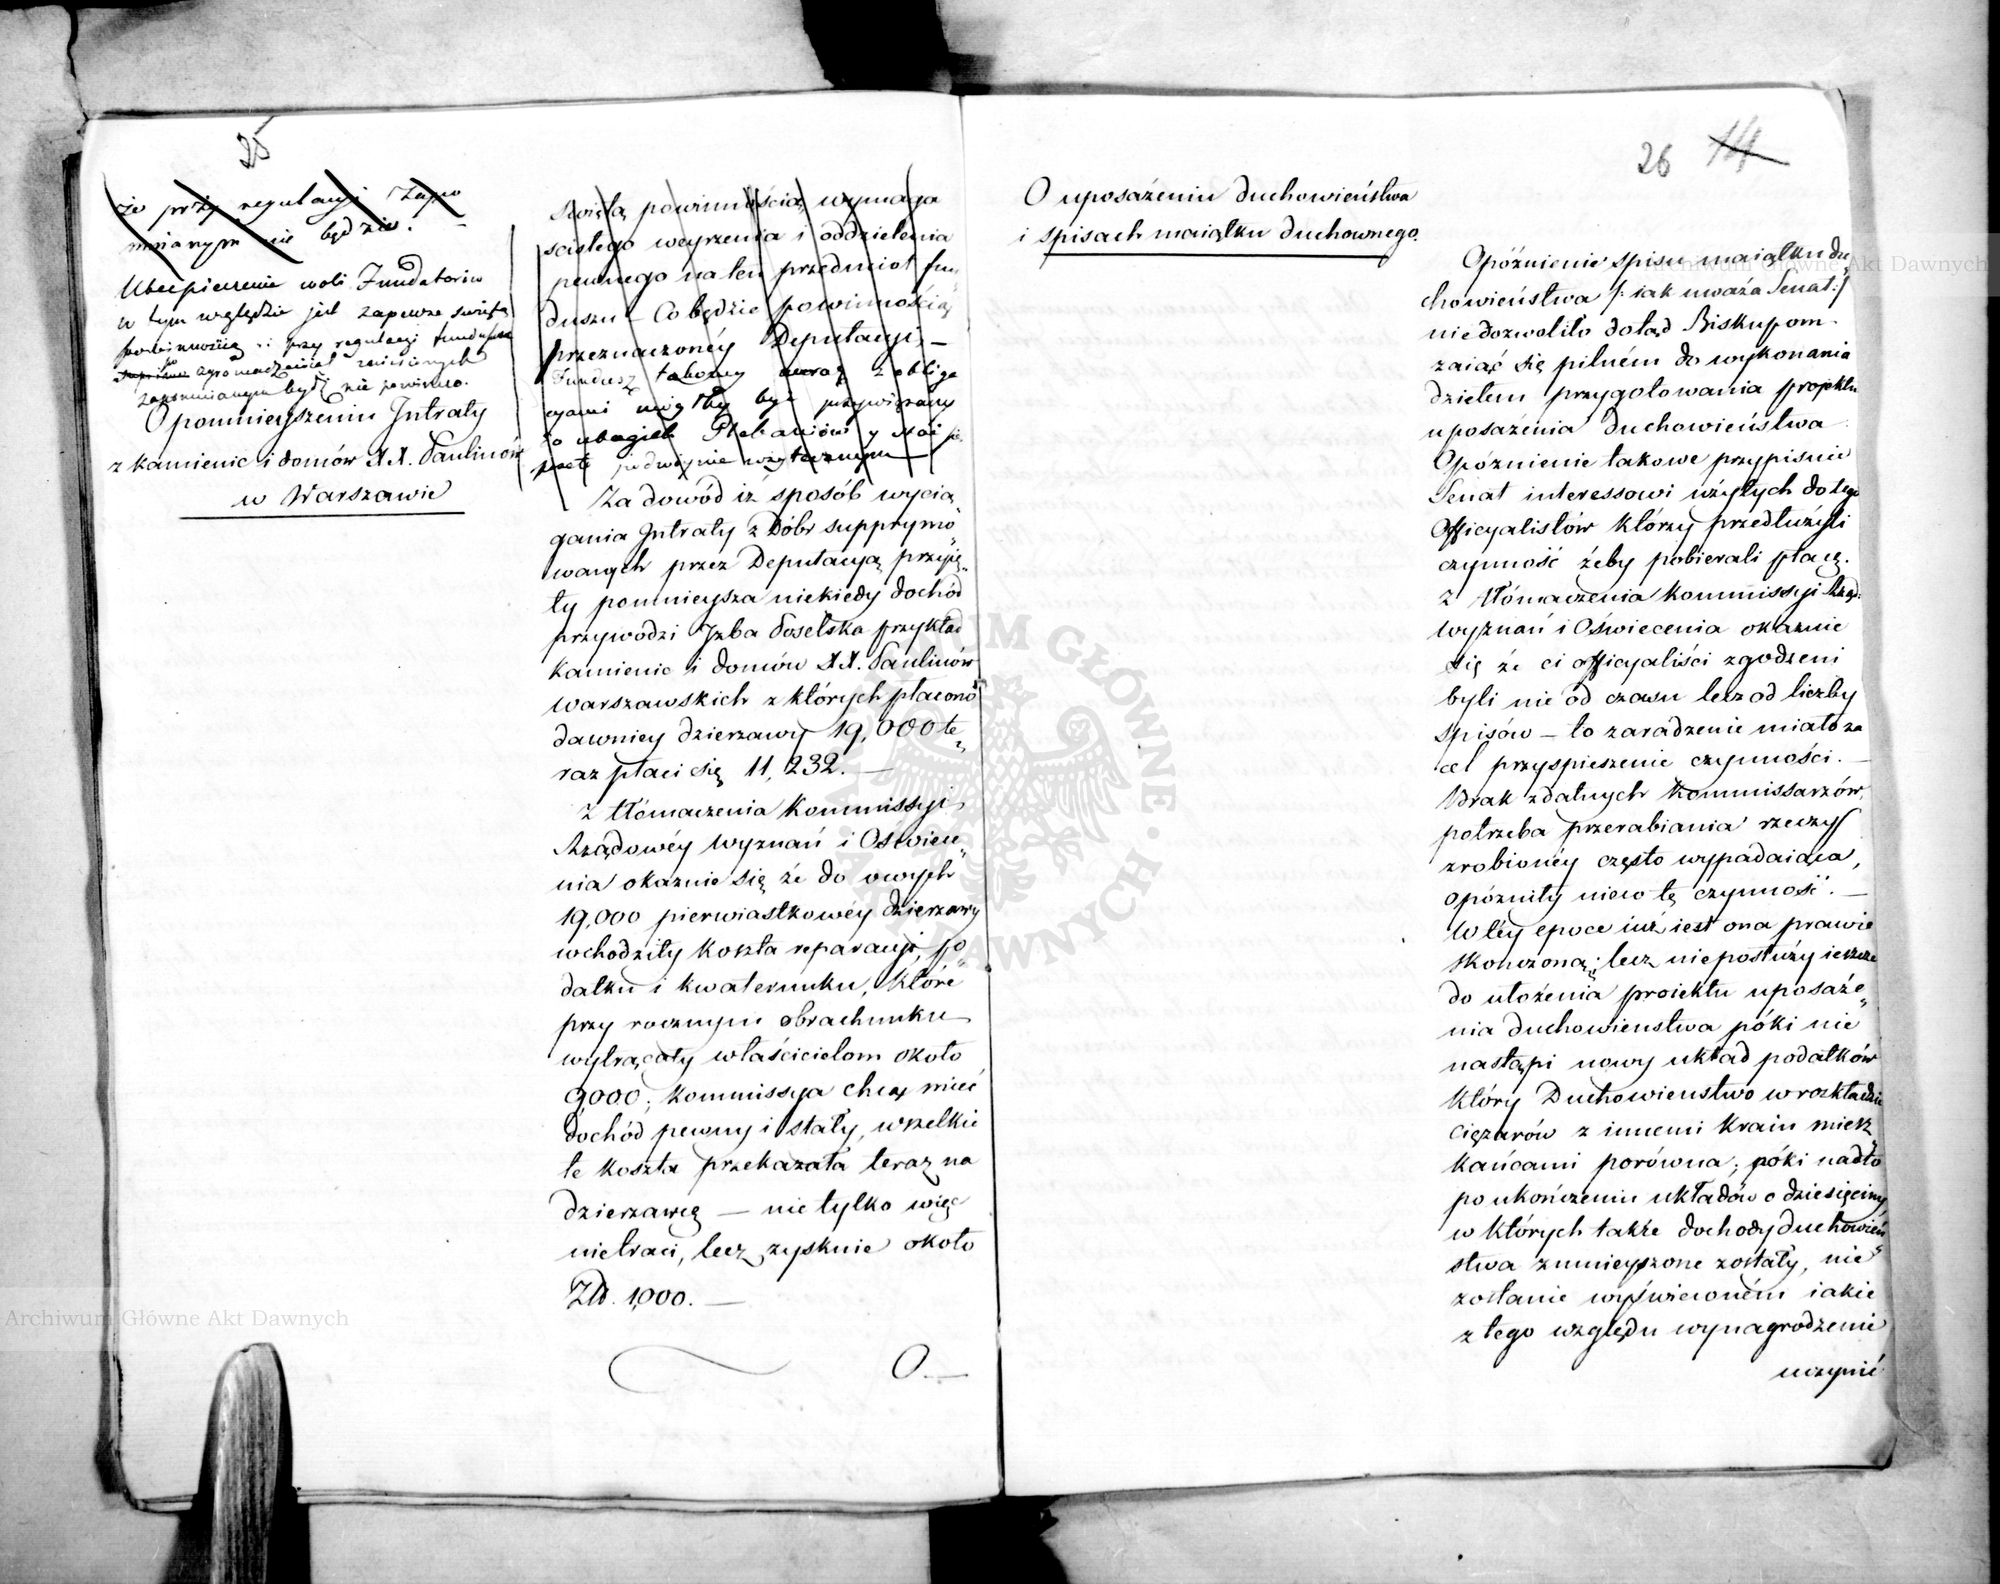 25
że przy regulacyi zapo
mnianym nie będzie.
Ubezpieczenie woli Fundatorów
w tym względzie jest zapewne świętą
powinnością i przy regulacyi funduszu
zgromadzeniach zniesionych
zapomnianym być nie powinno.
O pomnieyszeniu Jntraty
z kamienic i domów XX. Paulinów
w Warszawie
świętą powinnością, wymaga
scisłego weyrzenia i oddzielenia
pewnego na ten przedmiot fun„
duszu – Co będzie powinnością
przeznaczonéy Deputacyi, –
Fundusz takowy wraz z obliga
cyami mógłby być przywiązany
do ubogich Plebaniów y stać się
przeto podwóynie użytecznym
Za dowód iż sposób wycią„
gania Jntraty z Dóbr supprymo„
wanych przez Deputacyą przyię„
ty pomnieysza niekiedy dochód
przywodzi Jzba Poselska przykład
kamienic i domów XX. Paulinów
warszawskich z których płacono
dawniey dzierzawy 19,000 te„
raz płaci się 11,232. —
Z tłómaczenia Kommissyi
Rządowéy Wyznań i Oswiece„
nia okazuie się że do owych
19,000 pierwiastkowéy dzierzawy
wchodziły koszta reparacyi, po„
datku i kwaterunku, które
przy rocznym obrachunku
wytrącały właścicielom około
9000; Kommissya chcąc mieć
dochód pewny i stały, wszelkie
te koszta przekazała teraz na
dzierzawcę — nie tylko więc
nietraci, lecz zyskuie około
Złł. 1,000. —
O. —
26 14
O uposażeniu duchowieństwa
i spisach maiątku duchownego.
Opóźnienie spisu maiątku du„
chowieństwa /: iak uważa Senat :/
niedozwoliło dotąd Biskupom
zaiąć się pilném do wykonania
dziełem przygotowania projektu
uposażenia duchowieństwa
Opóźnienie takowe przypisuie
Senat interessowi użytych do tego
Officyalistów którzy przedłużyli
czynność żeby pobierali płacę.
Z tłómaczenia Kommissyi Rząd:
Wyznań i Oświecenia okazuie
się że ci officyaliści zgodzeni
byli nie od czasu lecz od liczby
spisów – to zaradzenie miało za
cel przyspieszenie czynności. —
Brak zdatnych Kommissarzów,
potrzeba przerabiania rzeczy
zrobionéy często wypadaiąca,
opóźniły nieco tę czynność. —
W téy epoce iuż iest ona prawie
skonczoną; lecz nieposłuży ieszcze
do ułożenia proiektu uposaże„
nia duchowienstwa póki nie
nastąpi nowy układ podatków
który Duchowienstwo w rozkładzie
ciężarów z innemi kraiu miesz„
kańcami porówna; póki nadto
po ukończeniu układów o dziesięciny,
w których także dochody duchowień„
stwa zmnieyszone zostały, nie
zostanie wyświeconém iakie
z tego względu wynagrodzenie
uczynić
Archiwum Główne Akt Dawnych
Archiwum Główne Akt Dawnych